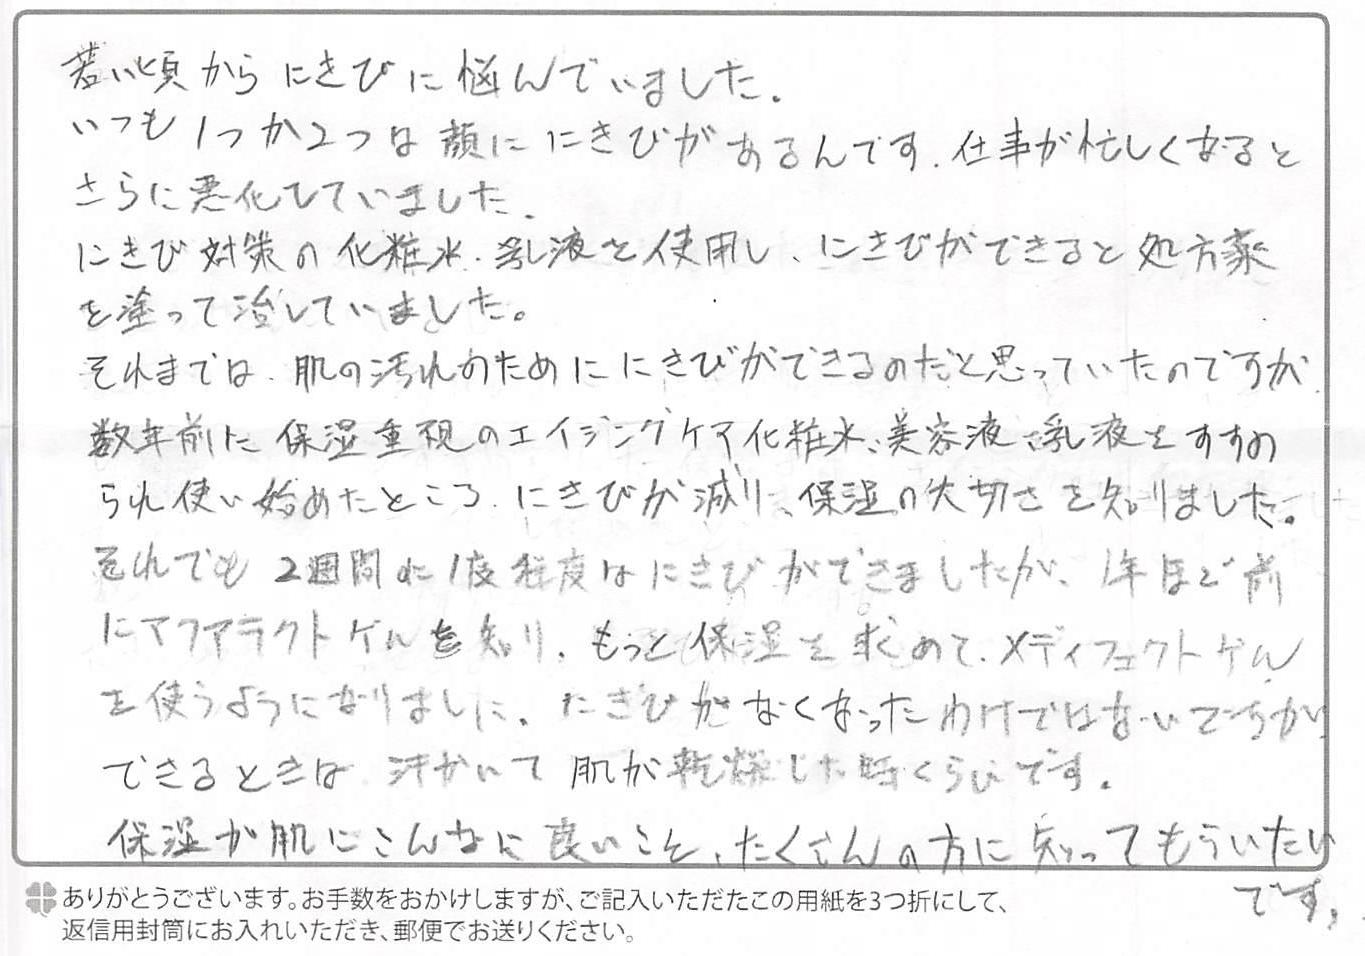 若い頃からにきびに悩んでいました。
いつも1つか2つは顔ににきびがあるんです。仕事が忙しくなると
さらに悪化していました。
にきび対策の化粧水、乳液を使用し、にきびができると処方薬
を塗って治していました。
それまでは、肌の汚れのためににきびができるのだと思っていたのですが、
数年前に保湿重視のエイジングケア化粧水、美容液、乳液をすすめ
られ使い始めたところ、にきびが減り、保湿の大切さを知りました。
それでも2週間に1度程度はにきびができましたが、1年ほど前
にアファラクトゲルを知り、もっと保湿を求めて、メディフェクトゲル
を使うようになりました。にきびがなくなったわけではないですが
できるときは、汗かいて肌が乾燥した時くらいです。
保湿が肌にこんなに良いこと、たくさんの方に知ってもらいたい
です。
ありがとうございます。お手数をおかけしますが、ご記入いただたこの用紙を3つ折にして、
返信用封筒にお入れいただき、郵便でお送りください。